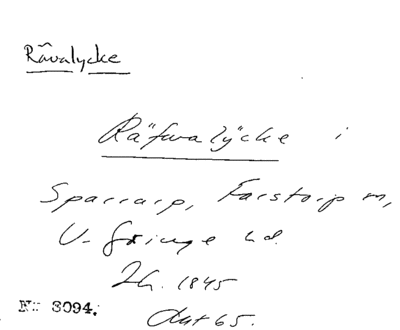 Råvalycke
Räfvalÿcke i
Sparrarp, Farstorp m,
V. Göinge hd.
Lh. 1845
Akt 65.
N:o 3094.